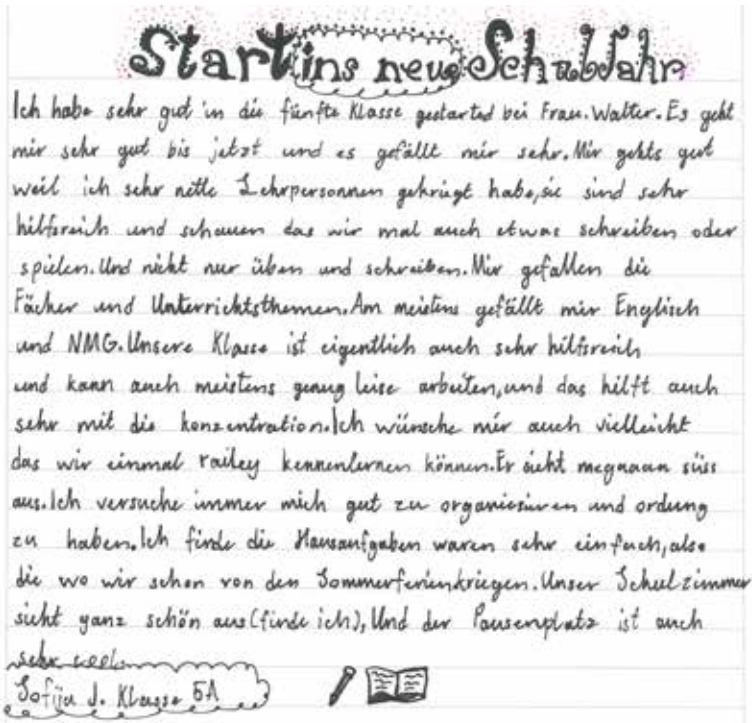 Start ins neue Schuljahr
Ich habe sehr gut in die fünfte Klasse gestarted bei Frau. Walter. Es geht
mir sehr gut bis jetzt und es gefällt mir sehr. Mir gehts gut
weil ich sehr nette Lehrpersonnen gekriegt habe, sie sind sehr
hilfsreich und schauen das wir mal auch etwas schreiben oder
spielen. Und nicht nur üben und schreiben. Mir gefallen die
Fächer und Unterrichtsthemen. Am meistens gefällt mir Englisch
und NMG. Unsere Klasse ist eigentlich auch sehr hilfsreich
und kann auch meistens genug leise arbeiten, und das hilft auch
sehr mit die konzentration. Ich wünsche mir auch vielleicht
das wir einmal railey kennenlernen können. Er sieht megaaaa süss
aus. Ich versuche immer mich gut zu organiesieren und ordung
zu haben. Ich finde die Hausaufgaben waren sehr einfach, also
die wo wir schon von den Sommerferien kriegen. Unser Schulzimmer
sieht ganz schön aus (finde ich), Und der Pausenplatz ist auch
sehr cool.
Sofija J. Klasse 5A